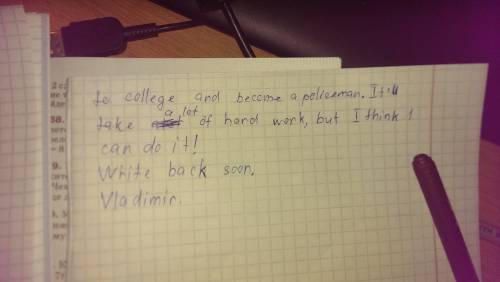 to college and become a policeman. It'll
take a lot of hard work, but I think I
can do it!
White back soon.
Vladimir.